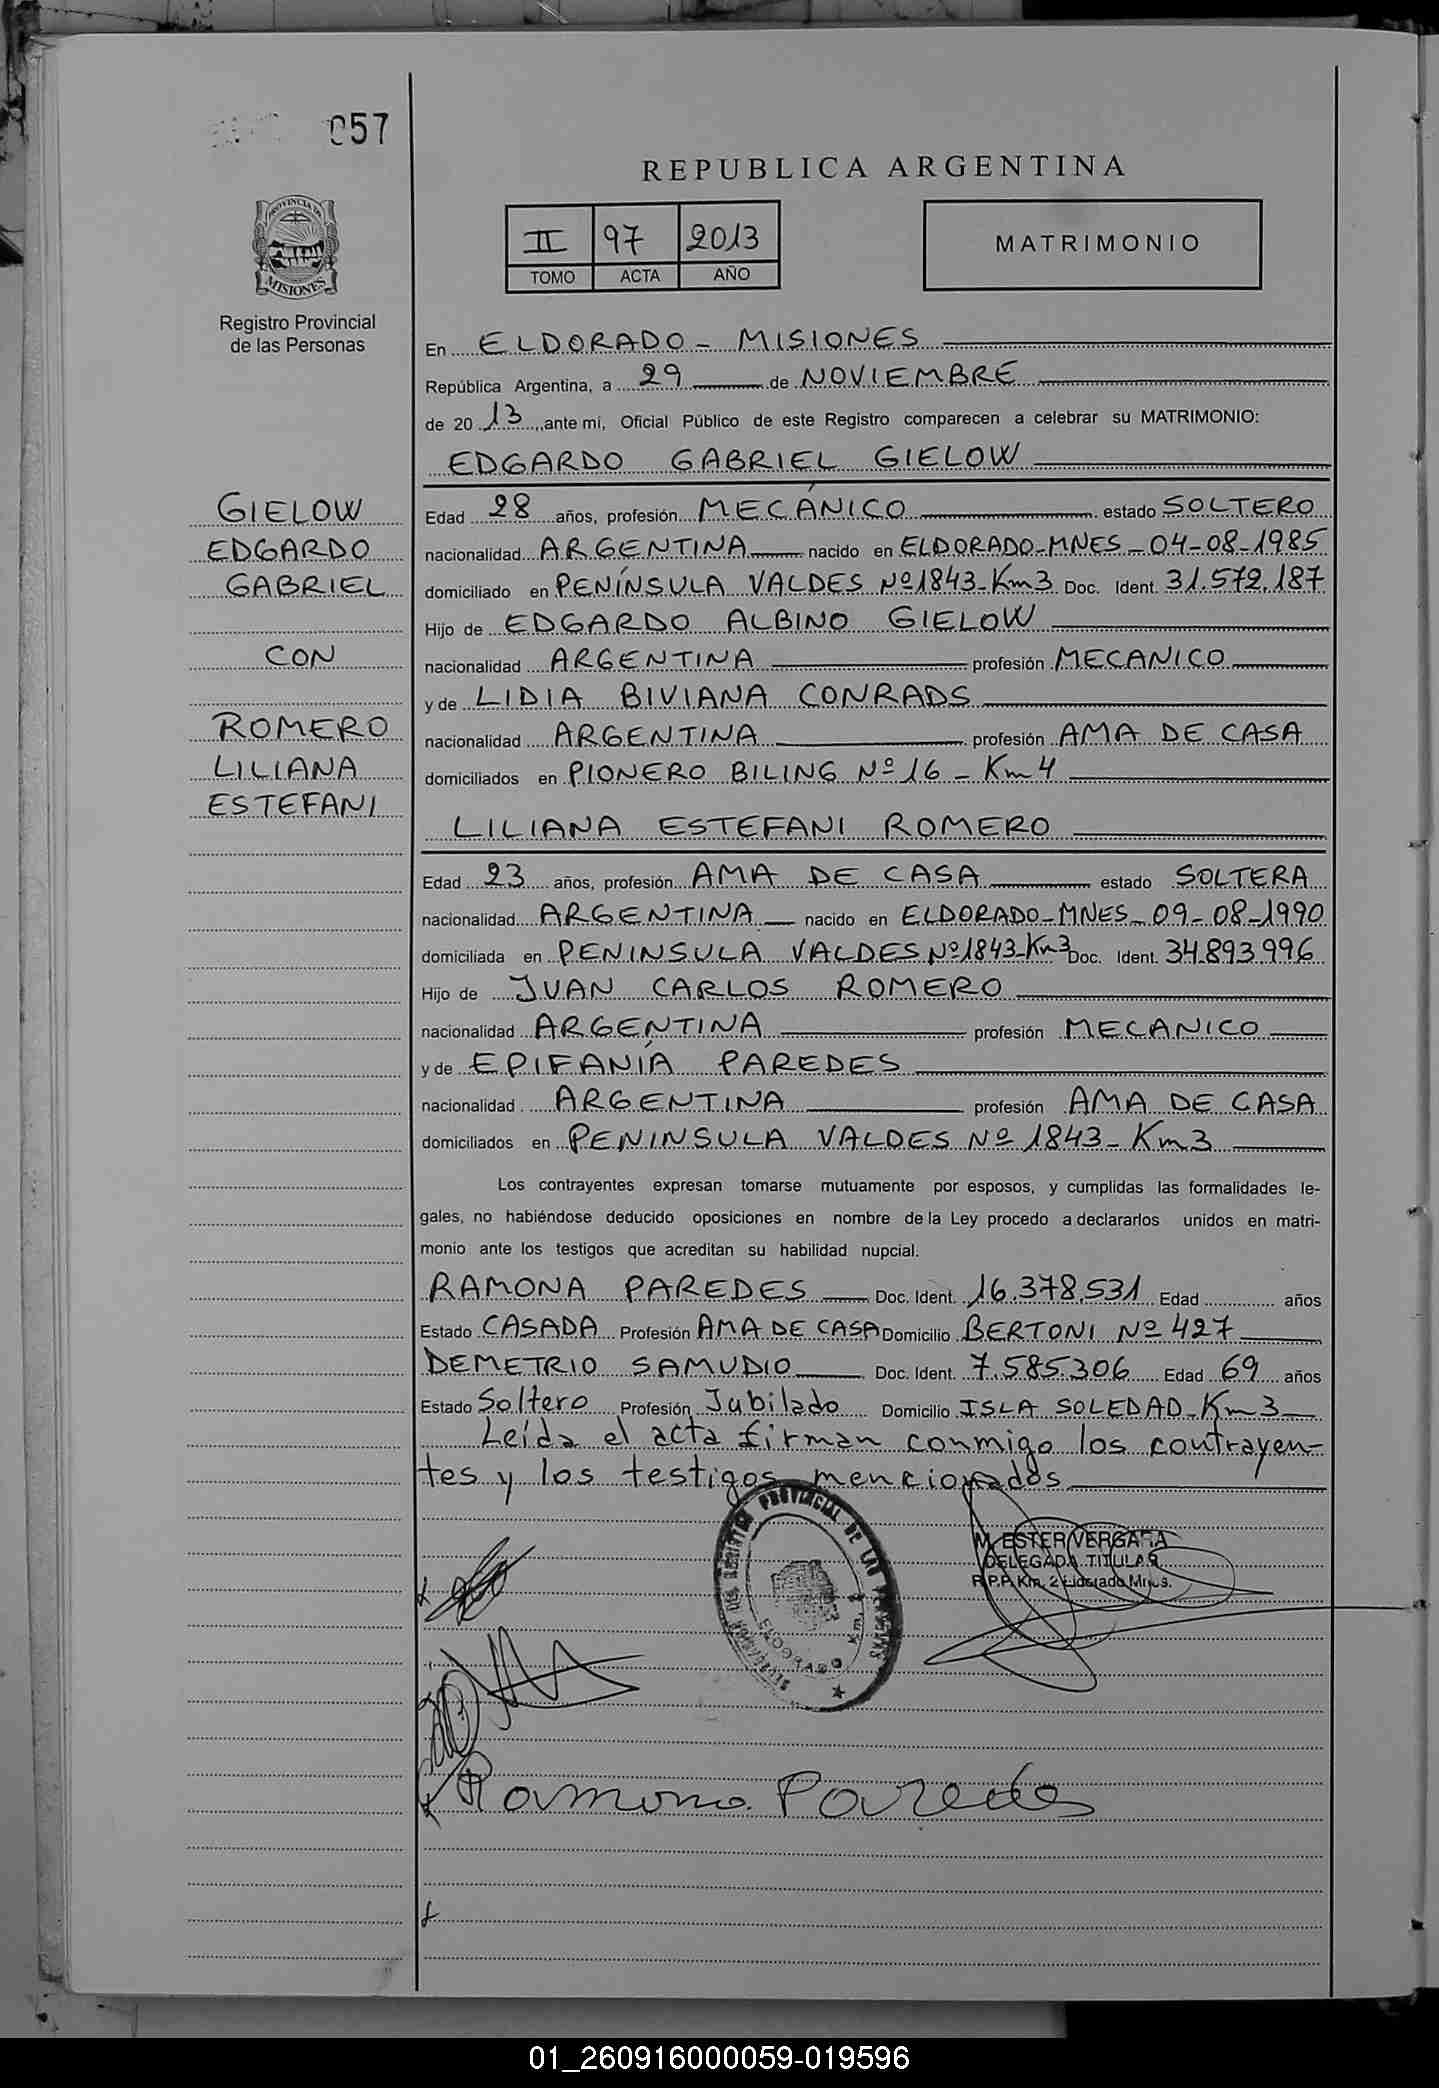 057
REPUBLICA ARGENTINA
II 97 2013
TOMO ACTA AÑO
MATRIMONIO
MISIONES
Registro Provincial
de las Personas
En ELDORADO - MISIONES
República Argentina, a 29 de NOVIEMBRE
de 20 13 ante mi, Oficial Público de este Registro comparecen a celebrar su MATRIMONIO:
EDGARDO GABRIEL GIELOW
GIELOW
EDGARDO
GABRIEL
CON
ROMERO
LILIANA
ESTEFANI
Edad 28 años, profesión MECÁNICO estado SOLTERO
nacionalidad ARGENTINA nacido en ELDORADO-MNES-04-08-1985
domiciliado en PENÍNSULA VALDES Nº1843-Km3 Doc. Ident. 31.572.187
Hijo de EDGARDO ALBINO GIELOW
nacionalidad ARGENTINA profesión MECANICO
y de LIDIA BIVIANA CONRADS
nacionalidad ARGENTINA profesión AMA DE CASA
domiciliados en PIONERO BILING Nº 16 - Km 4
LILIANA ESTEFANI ROMERO
Edad 23 años, profesión AMA DE CASA estado SOLTERA
nacionalidad ARGENTINA nacido en ELDORADO-MNES-09-08-1990
domiciliada en PENINSULA VALDES Nº1843-Km3 Doc. Ident. 34.893.996
Hijo de JUAN CARLOS ROMERO
nacionalidad ARGENTINA profesión MECANICO
y de EPIFANÍA PAREDES
nacionalidad ARGENTINA profesión AMA DE CASA
domiciliados en PENINSULA VALDES Nº 1843-Km3
Los contrayentes expresan tomarse mutuamente por esposos, y cumplidas las formalidades le-
gales, no habiéndose deducido oposiciones en nombre de la Ley procedo a declararlos unidos en matri-
monio ante los testigos que acreditan su habilidad nupcial.
RAMONA PAREDES Doc. Ident. 16.378.531 Edad años
Estado CASADA Profesión AMA DE CASA Domicilio BERTONI Nº 427
DEMETRIO SAMUDIO Doc. Ident. 7.585.306 Edad 69 años
Estado Soltero Profesión Jubilado Domicilio ISLA SOLEDAD-Km3
Leída el acta firman conmigo los contrayen-
tes y los testigos mencionados
PROVINCIAL DE LAS PERSONAS
ELDORADO Km. 2
M. ESTER VERGARA
DELEGADA TITULAR
R.P.P. Km. 2 Eldorado Mnes.
Ramona Paredes
01_260916000059-019596